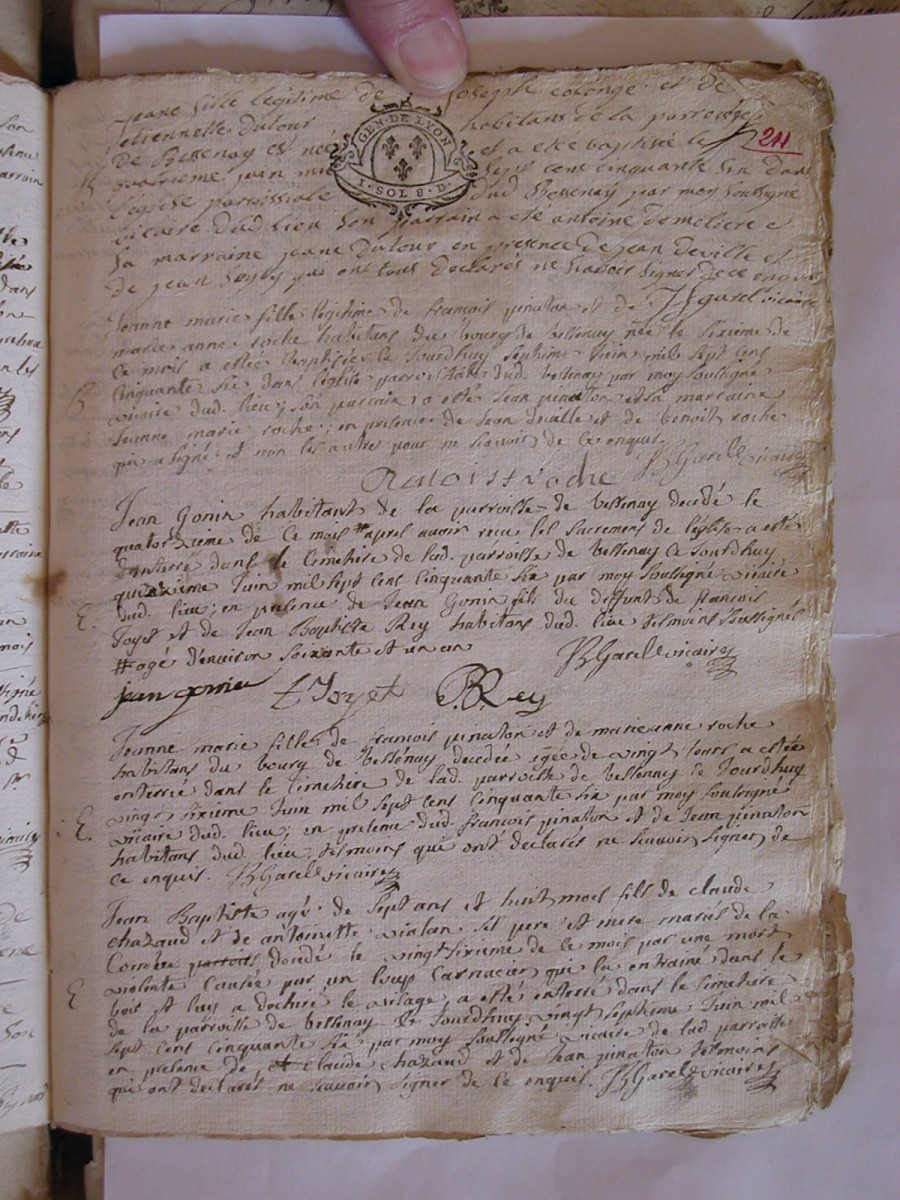 jeane fille legitime de joseph colonge et de
etiennette dutour habitans de la parroisse
de Bessenay est née et a eté baptisée le
GEN · DE LYON
1 · SOL 8 · D
24
quatrieme juin mil sept cent cinquante six dans
B
l'eglise parroissiale dud Bessenay par moy soussigné
vicaire dud lieu son parrain a eté antoine
sa marraine jeane dutour en presence de jean deville et
de jean qui ont tous declarés ne scavoir signer de ce enquis
JBgarel vicaire
Jeanne marie fille legitime de francois pinaton et de
marie anne roche habitans du bourg de bessenay née le sixieme de
ce mois a estée baptisée ce jourdhuy septieme Juin mil sept cens
Cinquante six dans leglise parroissialle dud. bessenay par moy soussigné
B
vicaire dud. lieu; son parrain a esté Jean pinaton et sa marraine
Jeanne marie roche; en presence de Jean deville et de benoit roche
qui a signé et non les autres pour ne scavoir de ce enquis.
Benoist roche JBGarel vicaire
Jean Gonin habitant de la parroisse de bessenay decedé le
quatorzieme de ce mois # apres avoir recu les sacremens de leglise a esté
Enterré dans le Cimetiere de lad. parroisse de bessenay ce Jourdhuy
quinzieme Juin mil sept cens Cinquante six par moy soussigné vicaire
E.
dud. lieu; en presence de Jean Gonin fils du deffunt de francois
Joyet et de Jean Baptiste Rey habitans dud. lieu tesmoins soussignés
# agé d'environ soixante et un an JBGarel vicaire
jean gonin f Joyet JB.Rey
Jeanne marie fille de francois pinaton et de marieanne roche
habitans du bourg de bessenay decedée agée de vingt jours a estée
enterrée dans le cimetiere de lad. parroisse de bessenay ce Jourdhuy
vingt sixieme Juin mil sept cens cinquante six par moy soussigné
E.
vicaire dud. lieu; en presence dud. francois pinaton et de Jean pinaton
habitans dud. lieu tesmoins qui ont declarés ne scavoir signer de
ce enquis. JBGarel vicaire
Jean Baptiste agé de sept ans et huit mois fils de claude
chazaud et de antoinette vialon ses pere et mere mariés de la
Combe decedé le vingt sixieme de ce mois par une mort
violente Causée par un loup Carnacier qui la entrainé dans le
E
bois et luy a dechiré le visage, a esté enterré dans le cimetiere
de la parroisse de bessenay ce Jourdhuy vingt septieme Juin mil
sept cens cinquante six par moy soussigné vicaire de lad. parroisse
en presence de claude chazaud et de Jean pinaton tesmoins
qui ont declarés ne scavoir signer de ce enquis. JBGarel vicaire